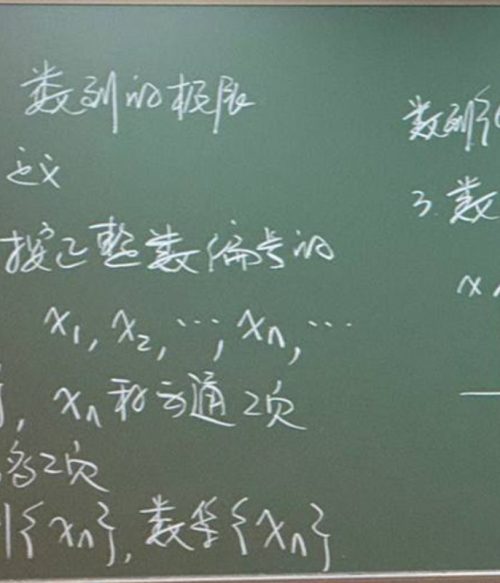 数列的极限
定义
按正整数编号的
x₁, x₂, ⋯, xₙ, ⋯
, xₙ称为通项
为项
列{xₙ}, 数集{xₙ}
数列{
3. 数
x